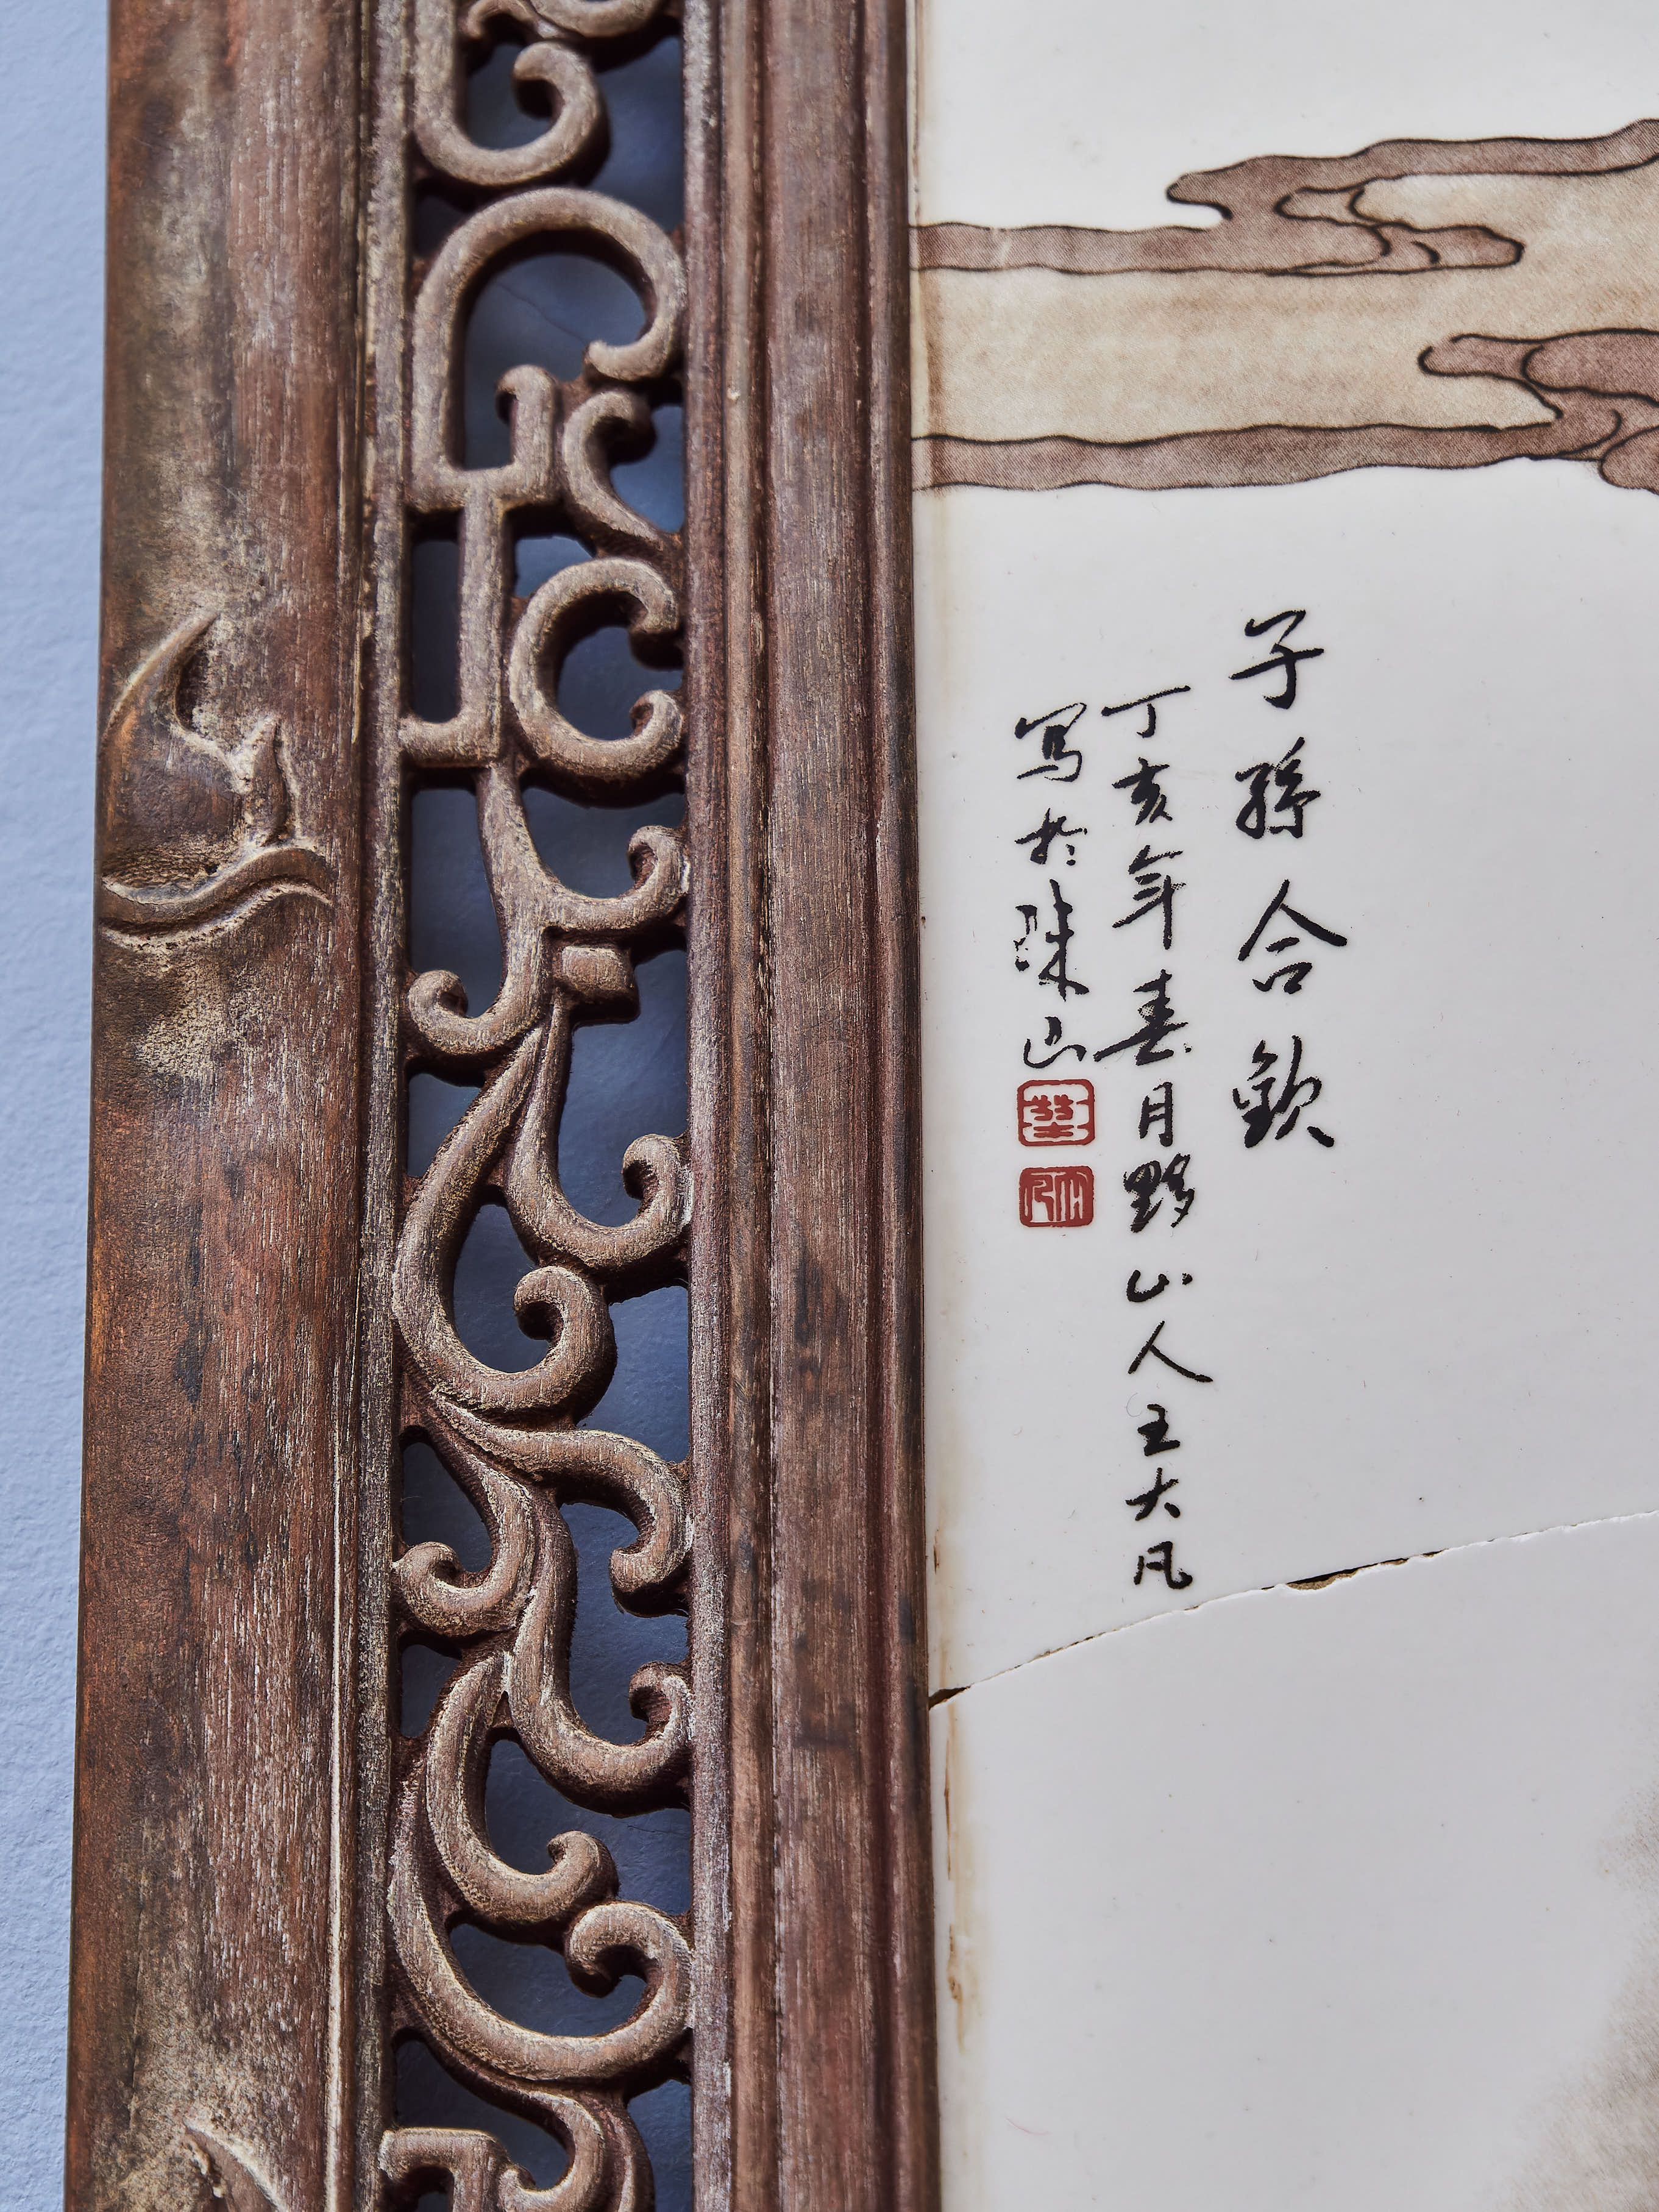 子孫合歓
丁亥年春月黟山人王大凡
写於珠山